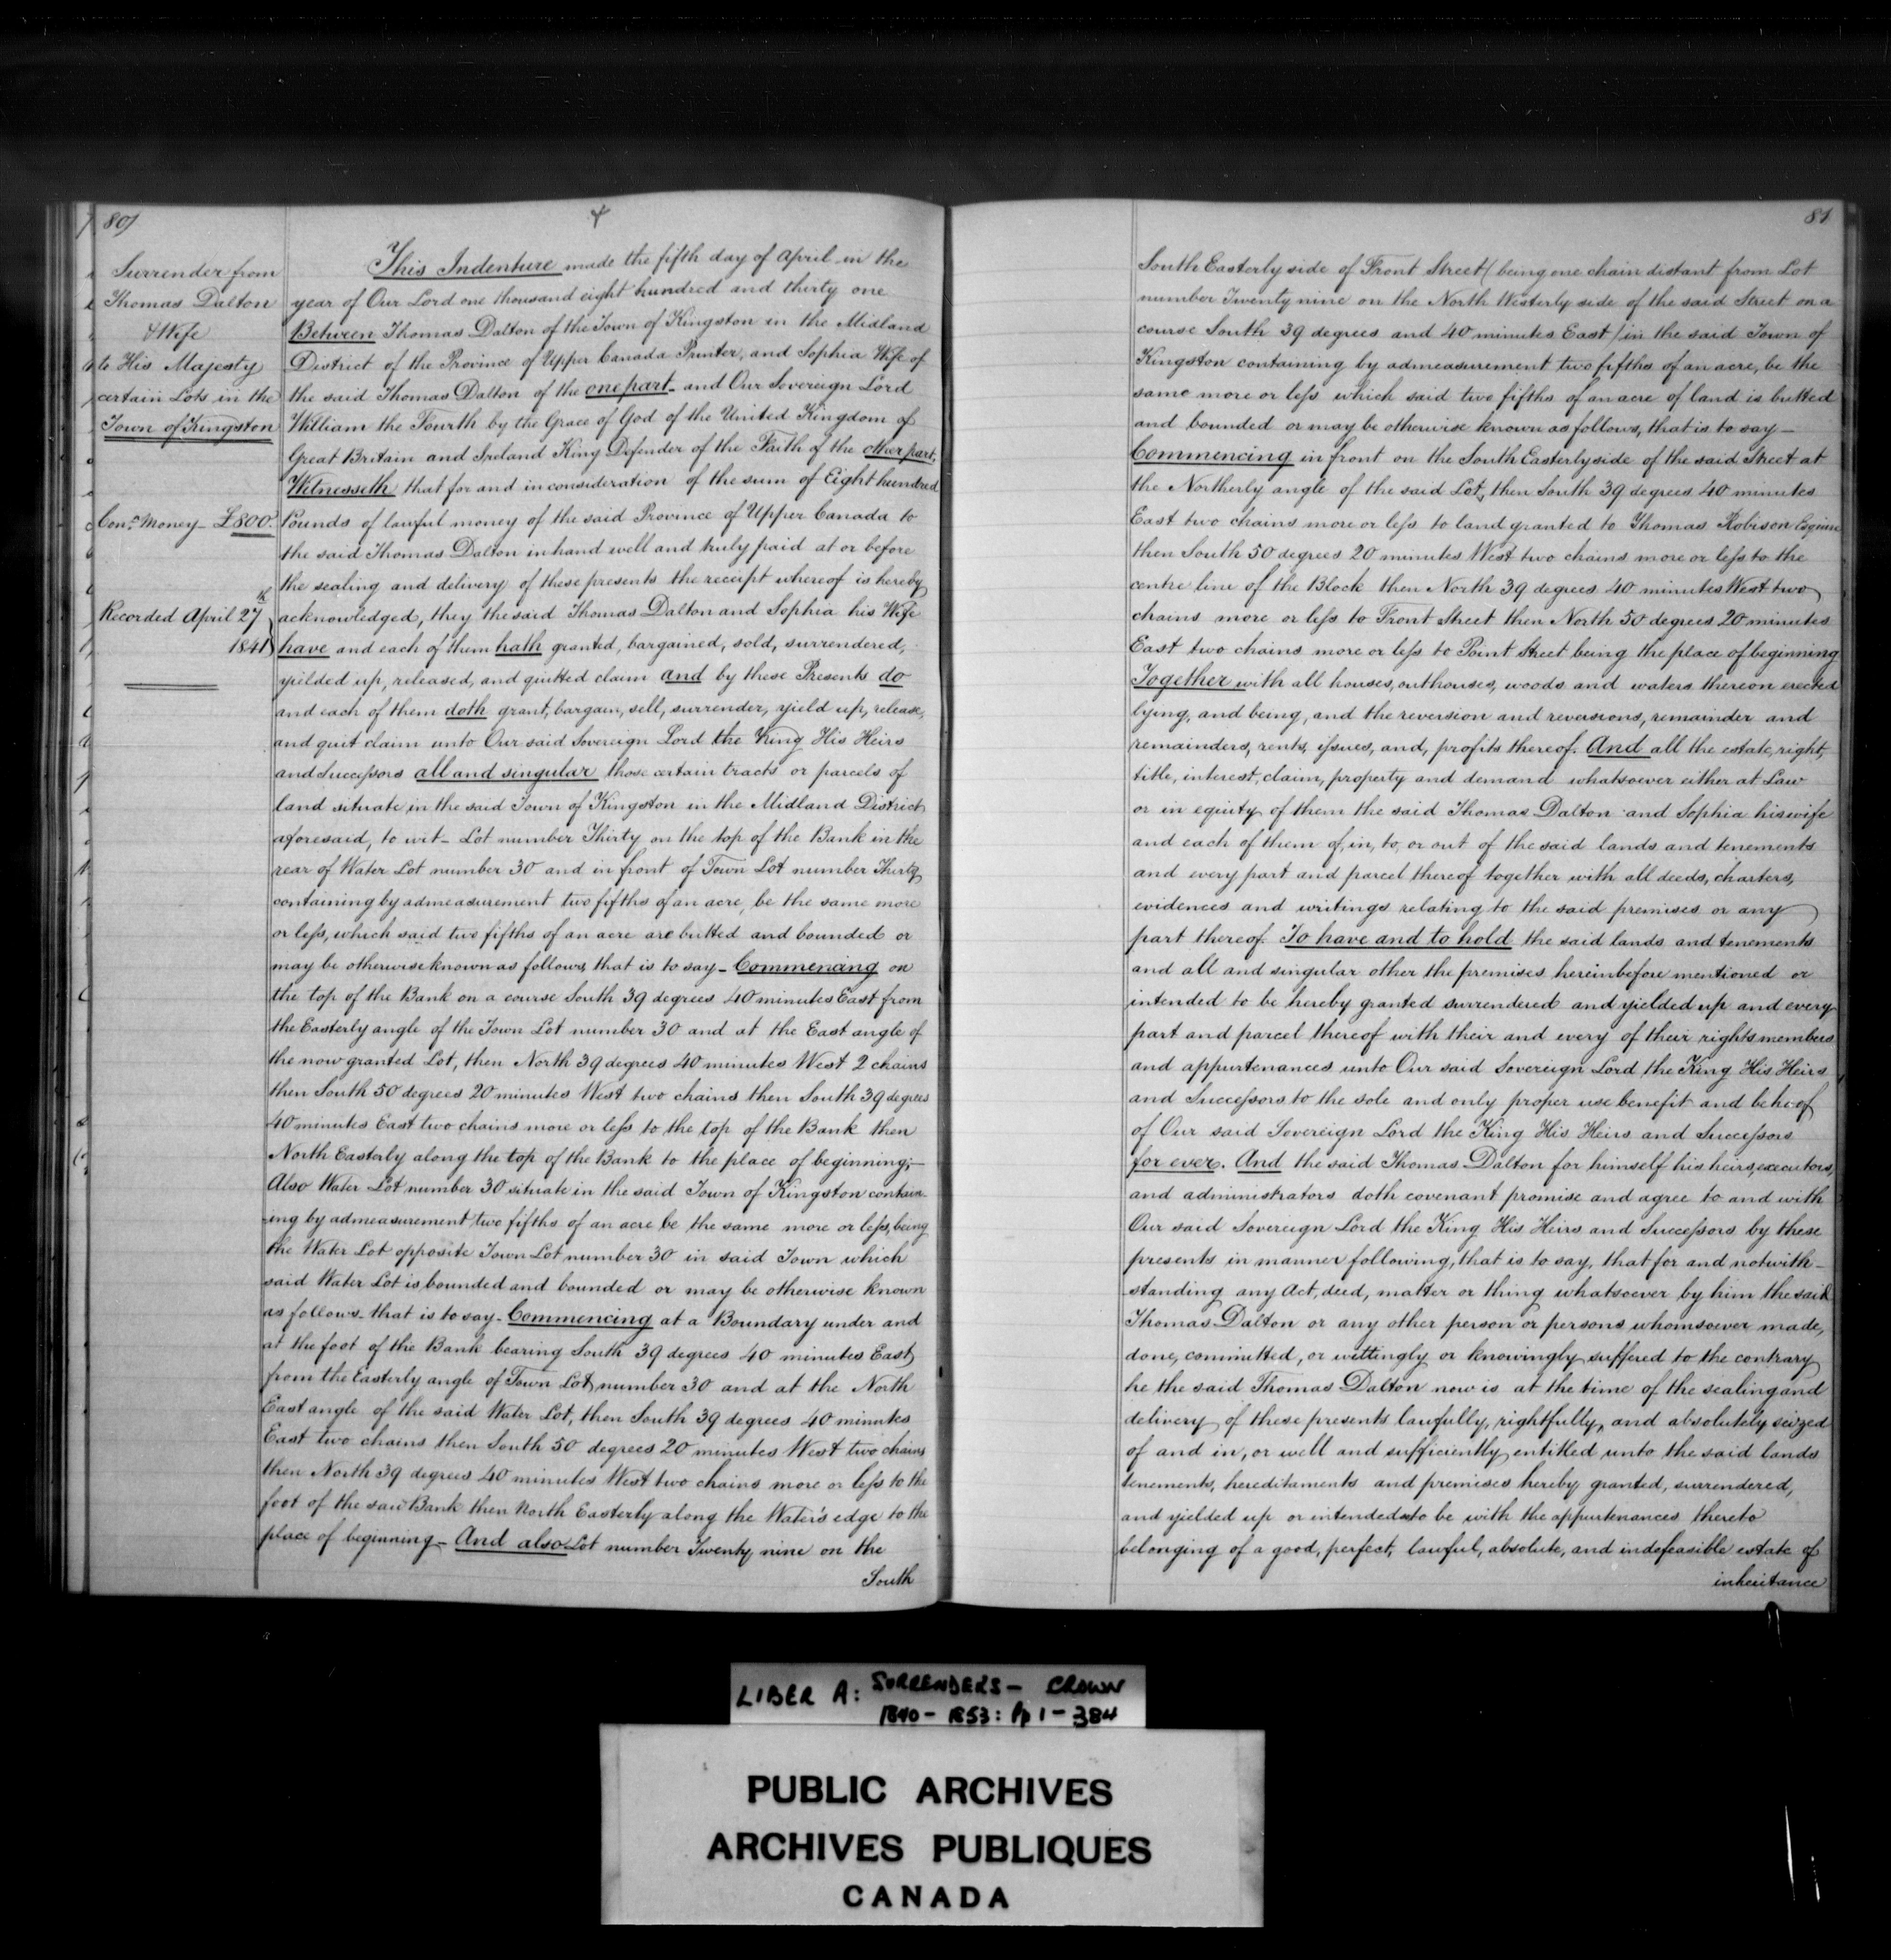 80
Surrender from
Thomas Dalton
& Wife
to His Majesty
certain Lots in the
Town of Kingston
Con.n Money - £800.
Recorded April 27th
1841
This Indenture made the fifth day of April in the
year of Our Lord one thousand eight hundred and thirty one
Between Thomas Dalton of the Town of Kingston in the Midland
District of the Province of Upper Canada Printer, and Sophia Wife of
the said Thomas Dalton of the one part - and Our Sovereign Lord
William the Fourth by the Grace of God of the United Kingdom of
Great Britain and Ireland King Defender of the Faith of the other part,
Witnesseth that for and in consideration of the sum of Eight hundred
Pounds of lawful money of the said Province of Upper Canada to
the said Thomas Dalton in hand well and truly paid at or before
the sealing and delivery of these presents the receipt whereof is hereby
acknowledged, they the said Thomas Dalton and Sophia his Wife
have and each of them hath granted, bargained, sold, surrendered,
yielded up, released, and quitted claim and by these Presents do
and each of them doth grant, bargain, sell, surrender, yield up, release,
and quit claim unto Our said Sovereign Lord the King His Heirs
and Successors all and singular those certain tracts or parcels of
land situate in the said Town of Kingston in the Midland District
aforesaid, to wit - Lot number Thirty on the top of the Bank in the
rear of Water Lot number 30 and in front of Town Lot number Thirty
containing by admeasurement two fifths of an acre, be the same more
or less, which said two fifths of an acre are butted and bounded or
may be otherwise known as follows, that is to say - Commencing on
the top of the Bank on a course South 39 degrees 40 minutes East from
the Easterly angle of the Town Lot number 30 and at the East angle of
the now granted Lot, then North 39 degrees 40 minutes West 2 chains
then South 50 degrees 20 minutes West two chains then South 39 degrees
40 minutes East two chains more or less to the top of the Bank then
North Easterly along the top of the Bank to the place of beginning; -
Also Water Lot number 30 situate in the said Town of Kingston contain-
ing by admeasurement two fifths of an acre be the same more or less, being
the Water Lot opposite Town Lot number 30 in said Town which
said Water Lot is bounded and bounded or may be otherwise known
as follows - that is to say - Commencing at a Boundary under and
at the foot of the Bank bearing South 39 degrees 40 minutes East
from the Easterly angle of Town Lot number 30 and at the North
East angle of the said Water Lot, then South 39 degrees 40 minutes
East two chains then South 50 degrees 20 minutes West two chains
then North 39 degrees 40 minutes West two chains more or less to the
foot of the said Bank then North Easterly along the Water's edge to the
place of beginning - And also Lot number Twenty nine on the
South
81
South Easterly side of Front Street (being one chain distant from Lot
number Twenty nine on the North Westerly side of the said Street on a
course South 39 degrees and 40 minutes East) in the said Town of
Kingston containing by admeasurement two fifths of an acre, be the
same more or less which said two fifths of an acre of land is butted
and bounded or may be otherwise known as follows, that is to say -
Commencing in front on the South Easterly side of the said Street at
the Northerly angle of the said Lot, then South 39 degrees 40 minutes
East two chains more or less to land granted to Thomas Robison Esquire
then South 50 degrees 20 minutes West two chains more or less to the
centre line of the Block then North 39 degrees 40 minutes West two
chains more or less to Front Street then North 50 degrees 20 minutes
East two chains more or less to Point Street being the place of beginning
Together with all houses, outhouses, woods and waters thereon erected
lying, and being, and the reversion and reversions, remainder and
remainders, rents, issues, and, profits thereof. And all the estate, right,
title, interest, claim, property and demand whatsoever either at Law
or in equity of them the said Thomas Dalton and Sophia his wife
and each of them of, in, to, or out of the said lands and tenements
and every part and parcel thereof together with all deeds, charters,
evidences and writings relating to the said premises or any
part thereof. To have and to hold the said lands and tenements
and all and singular other the premises hereinbefore mentioned or
intended to be hereby granted surrendered and yielded up and every
part and parcel thereof with their and every of their rights members
and appurtenances unto Our said Sovereign Lord the King His Heirs
and Successors to the sole and only proper use benefit and behoof
of Our said Sovereign Lord the King His Heirs and Successors
for ever. And the said Thomas Dalton for himself his heirs, executors,
and administrators doth covenant promise and agree to and with
Our said Sovereign Lord the King His Heirs and Successors by these
presents in manner following, that is to say, that for and notwith-
standing any Act, deed, matter or thing whatsoever by him the said
Thomas Dalton or any other person or persons whomsoever made,
done, committed, or wittingly or knowingly suffered to the contrary
he the said Thomas Dalton now is at the time of the sealing and
delivery of these presents lawfully, rightfully, and absolutely seized
of and in, or well and sufficiently entitled unto the said lands
tenements, hereditaments and premises hereby granted, surrendered,
and yielded up or intended to be with the appurtenances thereto
belonging of a good, perfect, lawful, absolute, and indefeasible estate of
inheritance
LIBER A: SURRENDERS - CROWN
1840 - 1853: Pp 1 - 384
PUBLIC ARCHIVES
ARCHIVES PUBLIQUES
CANADA